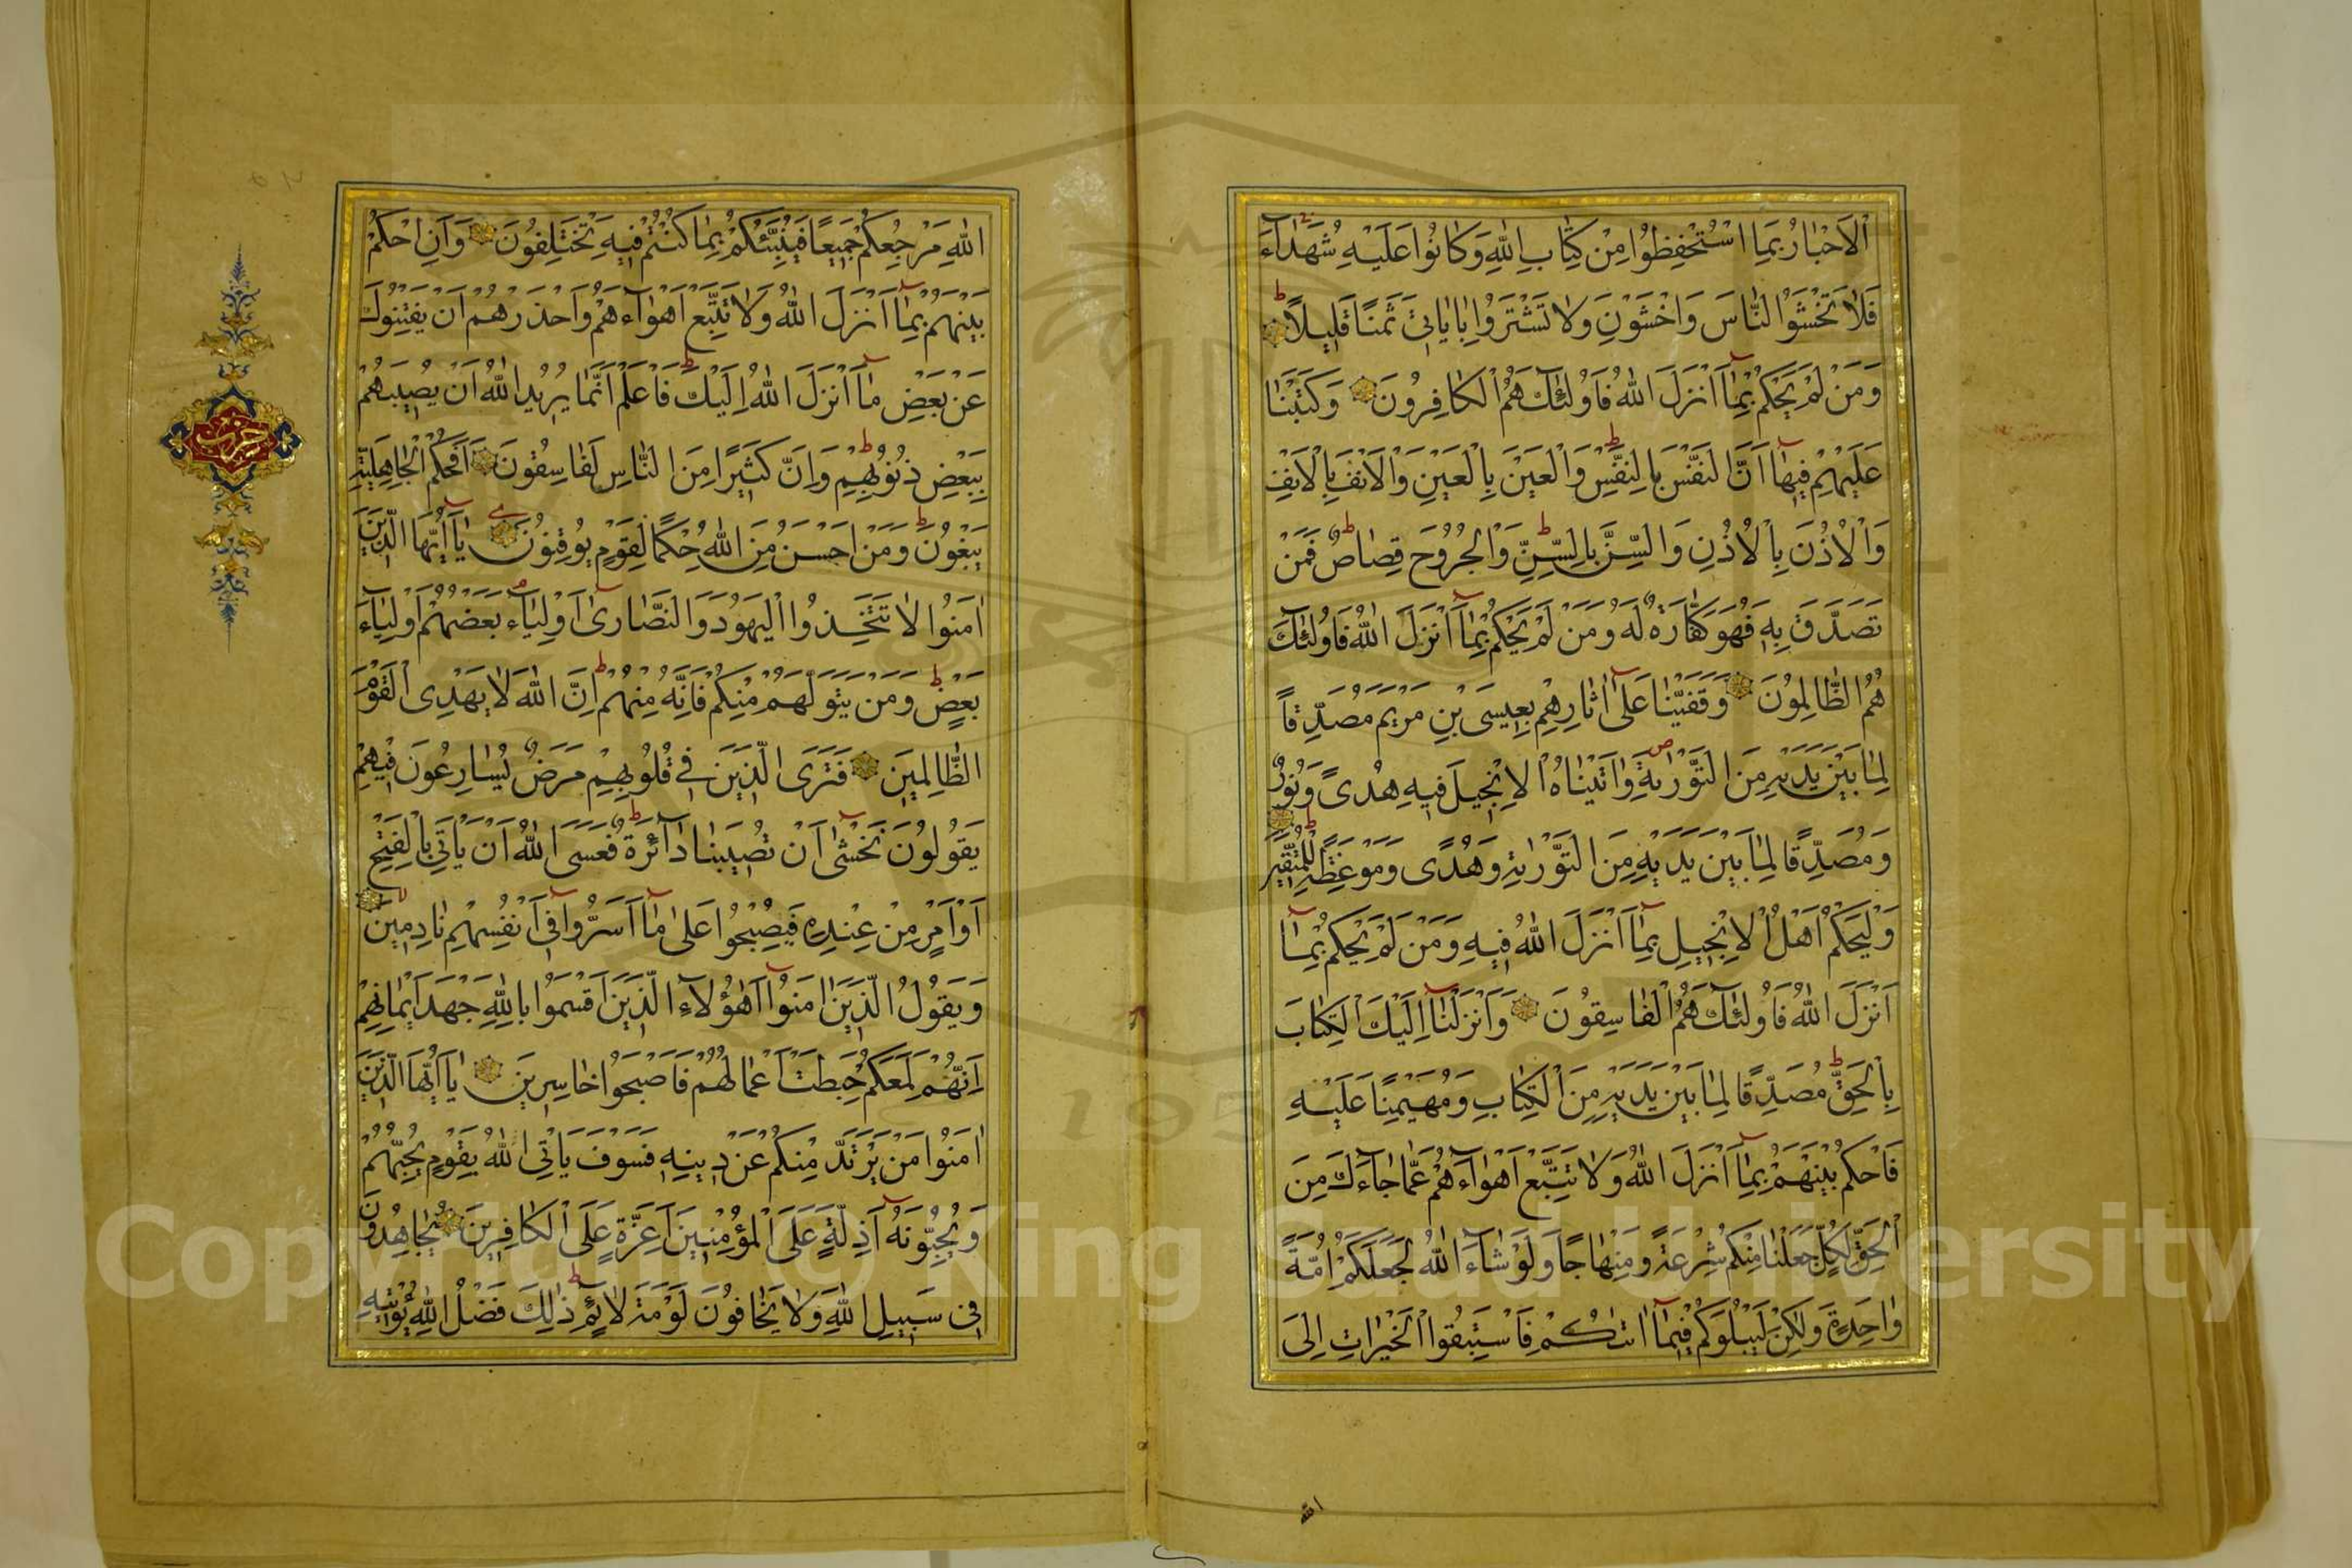 اْلاَحْبٰارُ بِمَا اسْتُحْفِظُوا مِنْ كِتٰابِ اللّٰهِ وَكٰانُوا عَلَيْهِ شُهَدٰآءَ
فَلاٰ تَخْشَوُا النّٰاسَ وَاخْشَوْنِ وَلاٰ تَشْتَرُوا بِاٰيٰاتِى ثَمَنًا قَلِيلاً
وَمَنْ لَمْ يَحْكُمْ بِمٰآ اَنْزَلَ اللّٰهُ فَاُولٰئِكَ هُمُ الْكٰافِرُونَ وَكَتَبْنٰا
عَلَيْهِمْ فِيهٰآ اَنَّ النَّفْسَ بِالنَّفْسِ وَالْعَيْنَ بِالْعَيْنِ وَالْاَنْفَ بِالْاَنْفِ
وَالْاُذُنَ بِالْاُذُنِ وَالسِّنَّ بِالسِّنِّ وَالْجُرُوحَ قِصٰاصٌ فَمَنْ
تَصَدَّقَ بِهِ فَهُوَ كَفّٰارَةٌ لَهُ وَمَنْ لَمْ يَحْكُمْ بِمٰآ اَنْزَلَ اللّٰهُ فَاُولٰئِكَ
هُمُ الظّٰالِمُونَ وَقَفَّيْنٰا عَلٰٓى اٰثٰارِهِمْ بِعِيسَى بْنِ مَرْيَمَ مُصَدِّقًا
لِمٰا بَيْنَ يَدَيْهِ مِنَ التَّوْرٰيةِ وَاٰتَيْنٰاهُ الْاِنْجِيلَ فِيهِ هُدًى وَنُورٌ
وَمُصَدِّقًا لِمٰا بَيْنَ يَدَيْهِ مِنَ التَّوْرٰيةِ وَهُدًى وَمَوْعِظَةً لِلْمُتَّقِينَ
وَلْيَحْكُمْ اَهْلُ الْاِنْجِيلِ بِمٰآ اَنْزَلَ اللّٰهُ فِيهِ وَمَنْ لَمْ يَحْكُمْ بِمٰآ
اَنْزَلَ اللّٰهُ فَاُولٰئِكَ هُمُ الْفٰاسِقُونَ وَاَنْزَلْنٰآ اِلَيْكَ الْكِتٰابَ
بِالْحَقِّ مُصَدِّقًا لِمٰا بَيْنَ يَدَيْهِ مِنَ الْكِتٰابِ وَمُهَيْمِنًا عَلَيْهِ
فَاحْكُمْ بَيْنَهُمْ بِمٰآ اَنْزَلَ اللّٰهُ وَلاٰ تَتَّبِعْ اَهْوٰآءَهُمْ عَمّٰا جٰآءَكَ مِنَ
الْحَقِّ لِكُلٍّ جَعَلْنٰا مِنْكُمْ شِرْعَةً وَمِنْهٰاجًا وَلَوْ شٰآءَ اللّٰهُ لَجَعَلَكُمْ اُمَّةً
وٰاحِدَةً وَلٰكِنْ لِيَبْلُوَكُمْ فِيمٰآ اٰتٰيكُمْ فَاسْتَبِقُوا الْخَيْرٰاتِ اِلَى
الله
اللّٰهِ مَرْجِعُكُمْ جَمِيعًا فَيُنَبِّئُكُمْ بِمٰا كُنْتُمْ فِيهِ تَخْتَلِفُونَ وَاَنِ احْكُمْ
بَيْنَهُمْ بِمٰآ اَنْزَلَ اللّٰهُ وَلاٰ تَتَّبِعْ اَهْوٰآءَهُمْ وَاحْذَرْهُمْ اَنْ يَفْتِنُوكَ
عَنْ بَعْضِ مٰآ اَنْزَلَ اللّٰهُ اِلَيْكَ فَاعْلَمْ اَنَّمٰا يُرِيدُ اللّٰهُ اَنْ يُصِيبَهُمْ
بِبَعْضِ ذُنُوبِهِمْ وَاِنَّ كَثِيرًا مِنَ النّٰاسِ لَفٰاسِقُونَ اَفَحُكْمَ الْجٰاهِلِيَّةِ
يَبْغُونَ وَمَنْ اَحْسَنُ مِنَ اللّٰهِ حُكْمًا لِقَوْمٍ يُوقِنُونَ يٰآ اَيُّهَا الَّذِينَ
اٰمَنُوا لاٰ تَتَّخِذُوا الْيَهُودَ وَالنَّصٰارٰى اَوْلِيٰآءَ بَعْضُهُمْ اَوْلِيٰآءُ
بَعْضٍ وَمَنْ يَتَوَلَّهُمْ مِنْكُمْ فَاِنَّهُ مِنْهُمْ اِنَّ اللّٰهَ لاٰ يَهْدِى الْقَوْمَ
الظّٰالِمِينَ فَتَرَى الَّذِينَ فِى قُلُوبِهِمْ مَرَضٌ يُسٰارِعُونَ فِيهِمْ
يَقُولُونَ نَخْشٰٓى اَنْ تُصِيبَنٰا دٰآئِرَةٌ فَعَسَى اللّٰهُ اَنْ يَأْتِىَ بِالْفَتْحِ
اَوْ اَمْرٍ مِنْ عِنْدِهِ فَيُصْبِحُوا عَلٰى مٰآ اَسَرُّوا فِىٓ اَنْفُسِهِمْ نٰادِمِينَ
وَيَقُولُ الَّذِينَ اٰمَنُوٓا اَهٰؤُلاٰءِ الَّذِينَ اَقْسَمُوا بِاللّٰهِ جَهْدَ اَيْمٰانِهِمْ
اِنَّهُمْ لَمَعَكُمْ حَبِطَتْ اَعْمٰالُهُمْ فَاَصْبَحُوا خٰاسِرِينَ يٰآ اَيُّهَا الَّذِينَ
اٰمَنُوا مَنْ يَرْتَدَّ مِنْكُمْ عَنْ دِينِهِ فَسَوْفَ يَأْتِى اللّٰهُ بِقَوْمٍ يُحِبُّهُمْ
وَيُحِبُّونَهُٓ اَذِلَّةٍ عَلَى الْمُؤْمِنِينَ اَعِزَّةٍ عَلَى الْكٰافِرِينَ يُجٰاهِدُونَ
فِى سَبِيلِ اللّٰهِ وَلاٰ يَخٰافُونَ لَوْمَةَ لاٰئِمٍ ذٰلِكَ فَضْلُ اللّٰهِ يُؤْتِيهِ
حزب
Copyright © King Saud University
195